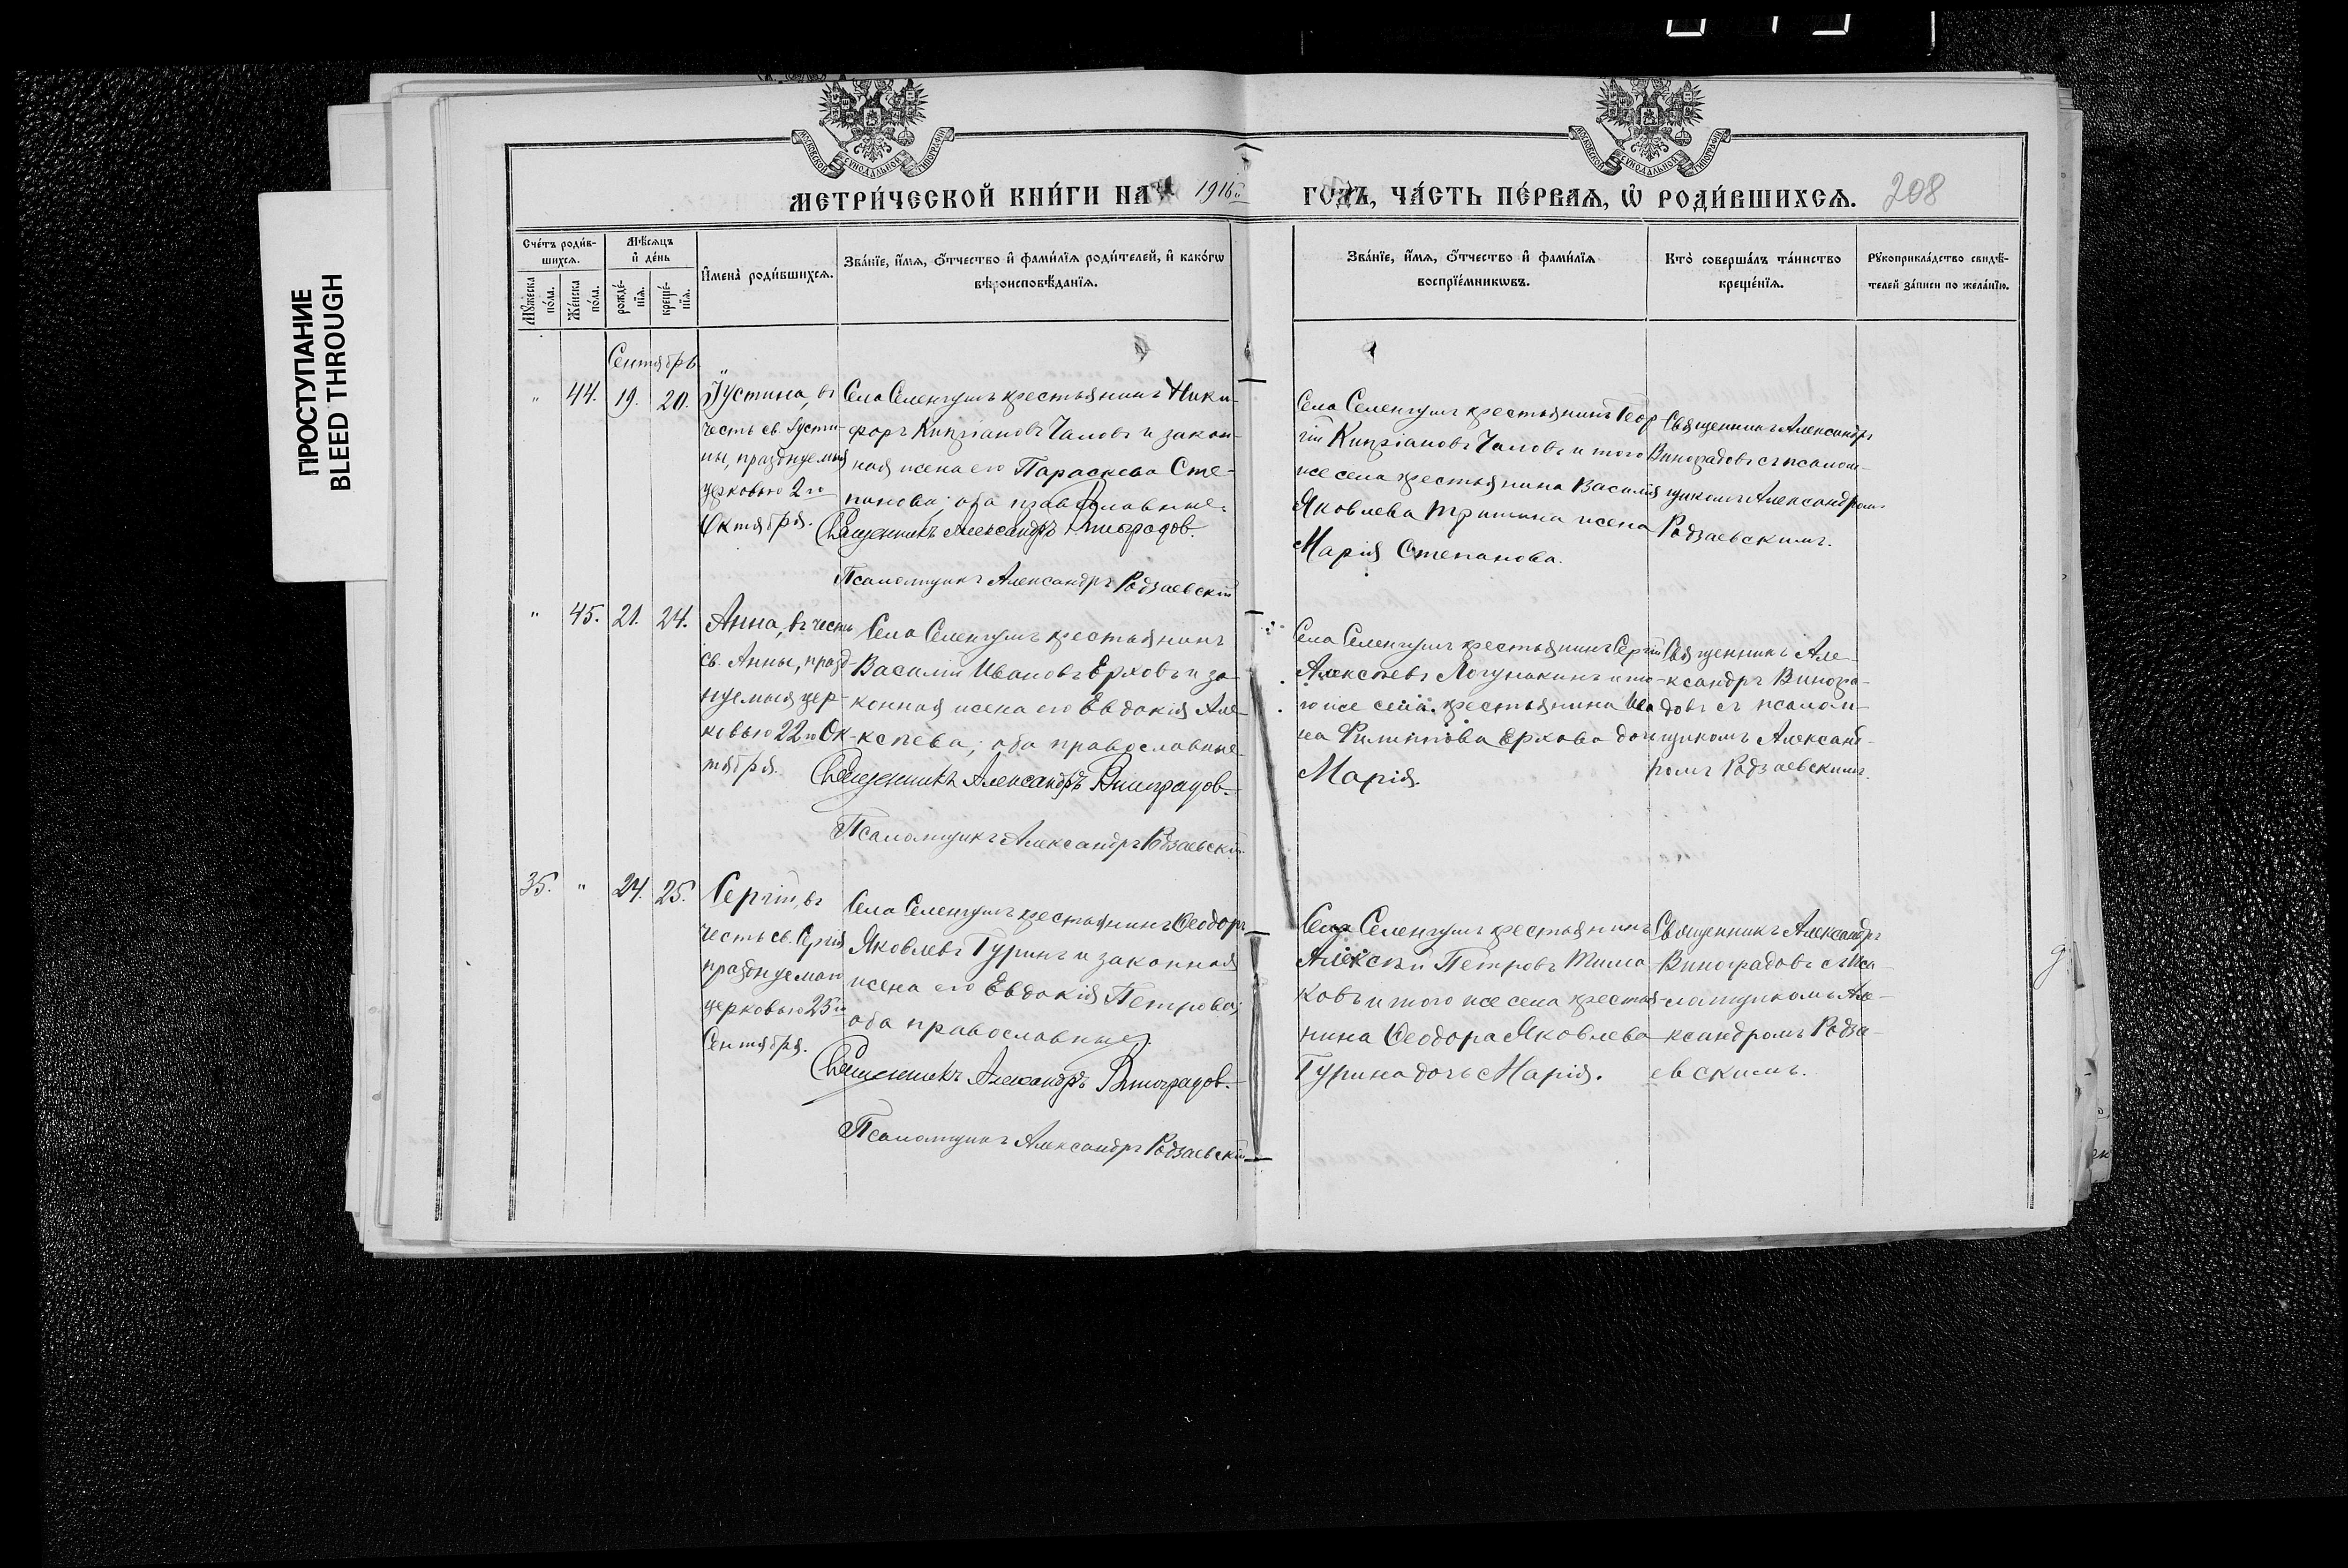 ПРОСТУПАНИЕ
BLEED THROUGH
МОСКОВСКОЙ СУНОДАЛЬНОЙ ТИПОГРАФІИ
МОСКОВСКОЙ СУНОДАЛЬНОЙ ТИПОГРАФІИ
МЕТРИ́ЧЕСКОЙ КНИ́ГИ НА 1916й ГОДЪ, ЧА́СТЬ ПЕ́РВАЯ, Ѡ҆ РОДИ́ВШИХСЯ. 208
Сче́тъ роди́в-
шихся.
Мѣ́сяцъ
и҆ де́нь
Мꙋ́жеска
по́ла.
Же́нска
по́ла.
рожде́-
нїя.
креще́-
нїя.
И҆мена̀ роди́вшихся.
Зва́нїе, и҆́мя, ѻ҆́тчество и҆ фами́лїя роди́телей, и҆ како́гѡ
вѣроисповѣ́данїя.
Зва́нїе, и҆́мя, ѻ҆́тчество и҆ фами́лїя
воспрїе́мникѡвъ.
Кто̀ соверша́лъ та́инство
креще́нїя.
Рꙋкоприкла́дство свидѣ́-
телей за́писи по жела́нїю.
Сентябрь
" 44. 19. 20.
Іустина, въ
честь св. Іусти-
ны, празднуемыя
церковью 2го
Октября.
Села Селенгушъ крестьянинъ Ники-
форъ Кипріановъ Чаловъ и закон-
ная жена его Параскева Сте-
панова; оба православные.
Священникъ Александръ Виноградов.
Псаломщикъ Александръ Родзаевскій
Села Селенгушъ крестьянинъ Геор
гій Кипріановъ Чаловъ и того
же села крестьянина Василія
Яковлева Тришина жена
Марія Степанова.
Священникъ Александръ
Виноградовъ съ псалом-
щикомъ Александромъ
Родзаевскимъ.
" 45. 21. 24.
Анна, въ честь
св. Анны, празд-
нуемыя цер-
ковью 22го Ок-
тября.
Села Селенгушъ крестьянинъ
Василій Ивановъ Ерховъ и за-
конная жена его Евдокія Але-
ксѣева; оба православные.
Священникъ Александръ Виноградов.
Псаломщикъ Александръ Родзаевскій.
Села Селенгушъ крестьянинъ Сергій
Алексѣевъ Логунькинъ и то-
го же села крестьянина Ива
на Филиппова Ерхова дочь
Марія.
Священникъ Але-
ксандръ Виногра-
довъ съ псалом-
щикомъ Александ-
ромъ Родзаевскимъ.
35. " 24. 25.
Сергій, въ
честь св. Сергія
празднуемаго
церковью 25го
Сентября.
Села Селенгушъ крестьянинъ Ѳеодоръ
Яковлевъ Гуринъ и законная
жена его Евдокія Петрова;
оба православные.
Священникъ Александръ Виноградов.
Псаломщикъ Александръ Родзаевскій
Села Селенгушъ крестьянинъ
Алексѣй Петровъ Тима
ковъ и того же села крестья-
нина Ѳеодора Яковлева
Гурина дочь Марія.
Священникъ Александръ
Виноградовъ съ пса-
ломщикомъ Але-
ксандромъ Родза-
евскимъ.